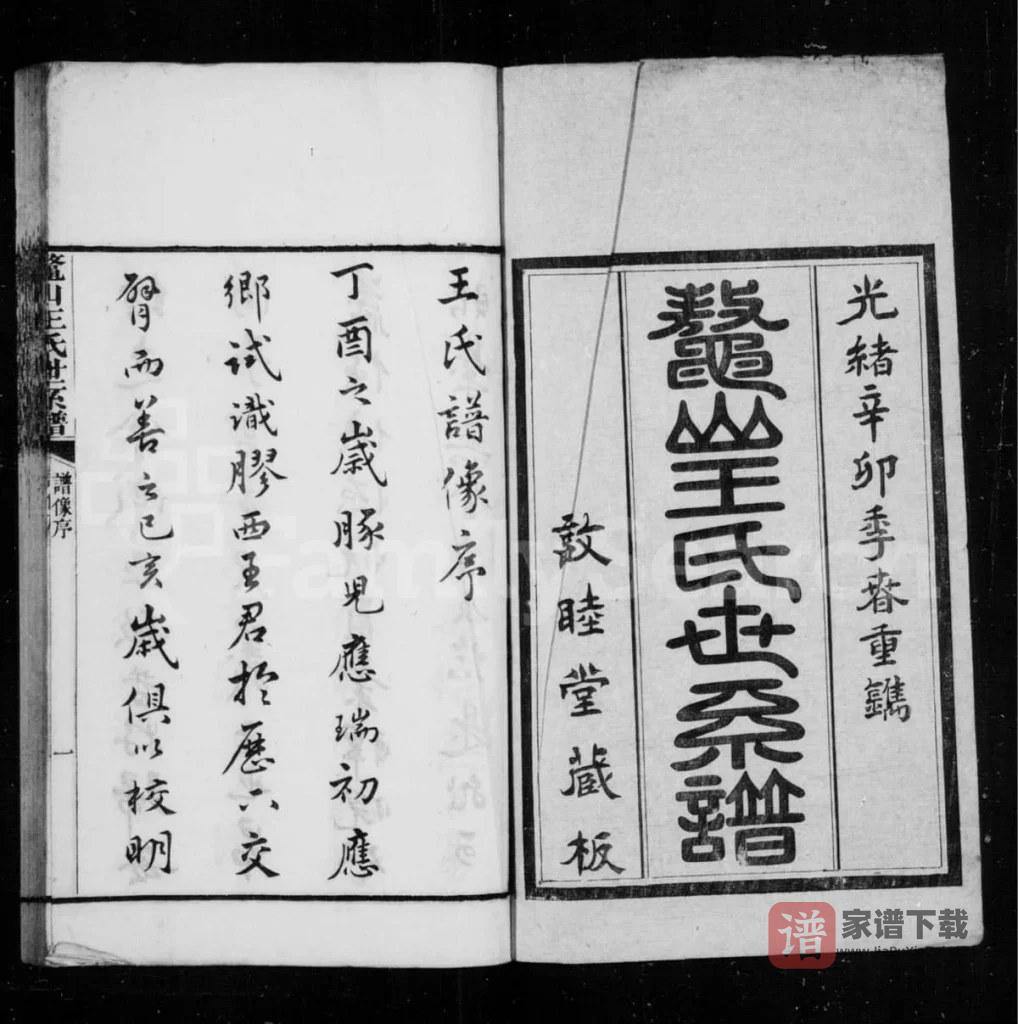 光緒辛卯季春重鐫
鼇山王氏世系譜
敦睦堂藏板
王氏譜像序
丁酉之歲豚兒應瑞初應
鄉試識膠西王君於歷下交
臂而善之己亥歲俱以校明
鼇山王氏世系譜
譜像序
一
FamilySearch
谱
家谱下载